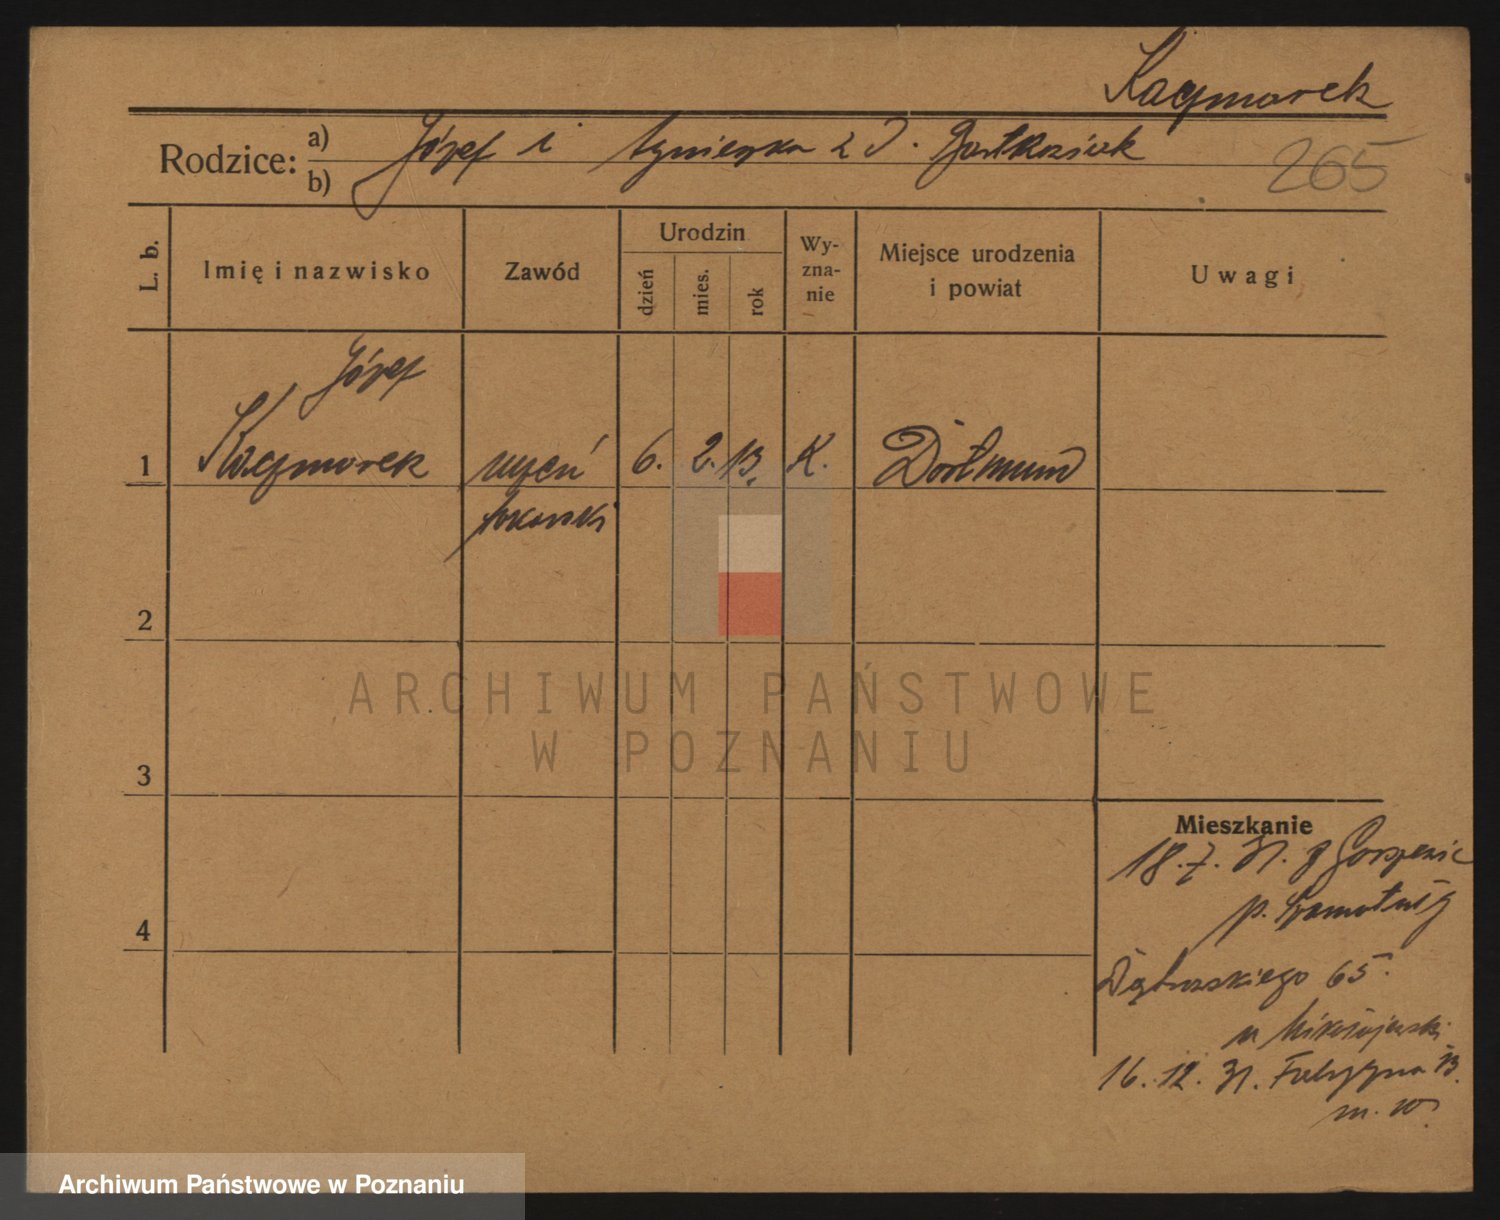 Kaczmarek
Rodzice: a) Józef i Agnieszka z d. Bartkowiak
b)
265
L. b. Imię i nazwisko Zawód Urodzin dzień mies. rok Wy-zna-nie Miejsce urodzenia i powiat Uwagi
Józef
1 Kaczmarek uczeń 6. 2. 13. K. Dortmund
tokarski
2
3
4
Mieszkanie
18.7.31. z
p. Szamotuły
Dąbrowskiego 65.
u Mikołajewski
16.12.31. Fabryczna 13.
m. 10.
ARCHIWUM PAŃSTWOWE
W POZNANIU
Archiwum Państwowe w Poznaniu